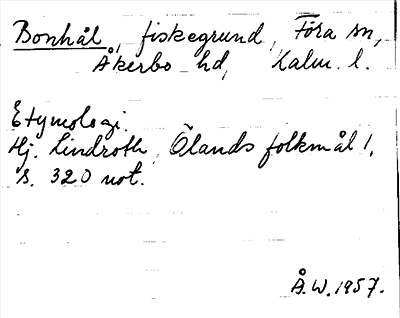 Bonhål, fiskegrund, Föra sn,
Åkerbo hd, Kalm. l.
Etymologi.
Hj. Lindroth, Ölands folkmål 1,
s. 320 not.
Å.W. 1957.